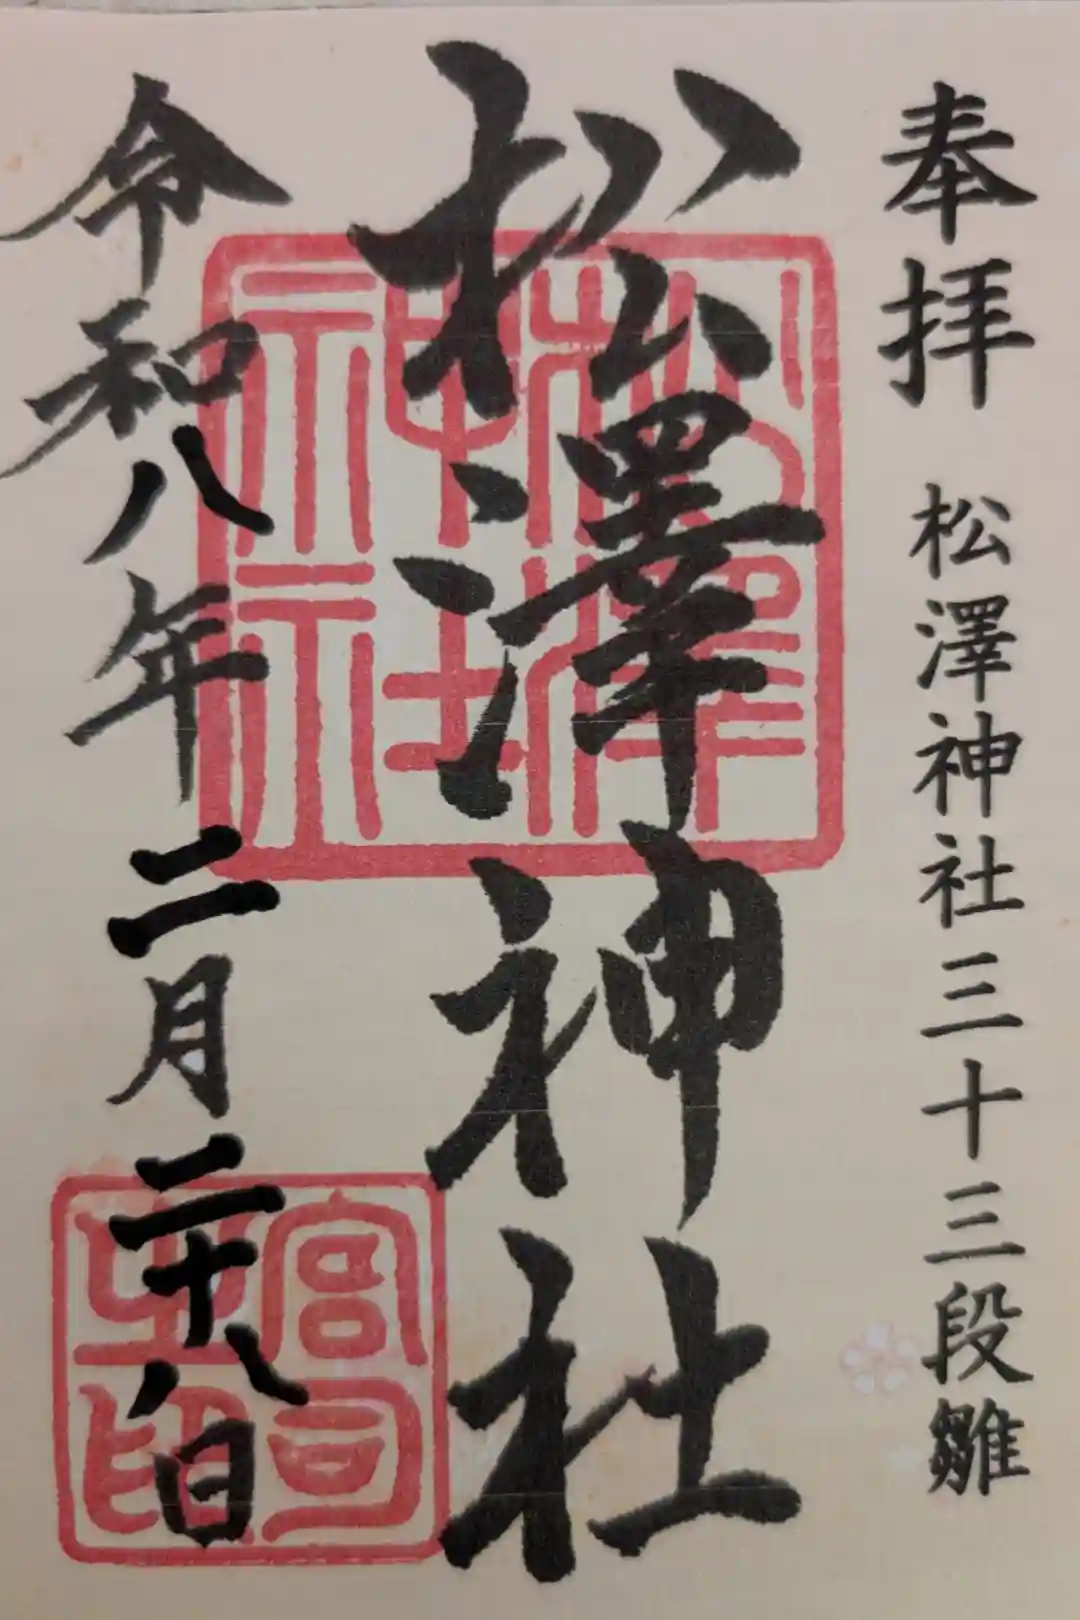 奉拝 松澤神社三十三段雛
松澤神社
松澤神社
令和八年二月二十八日
宮司之印